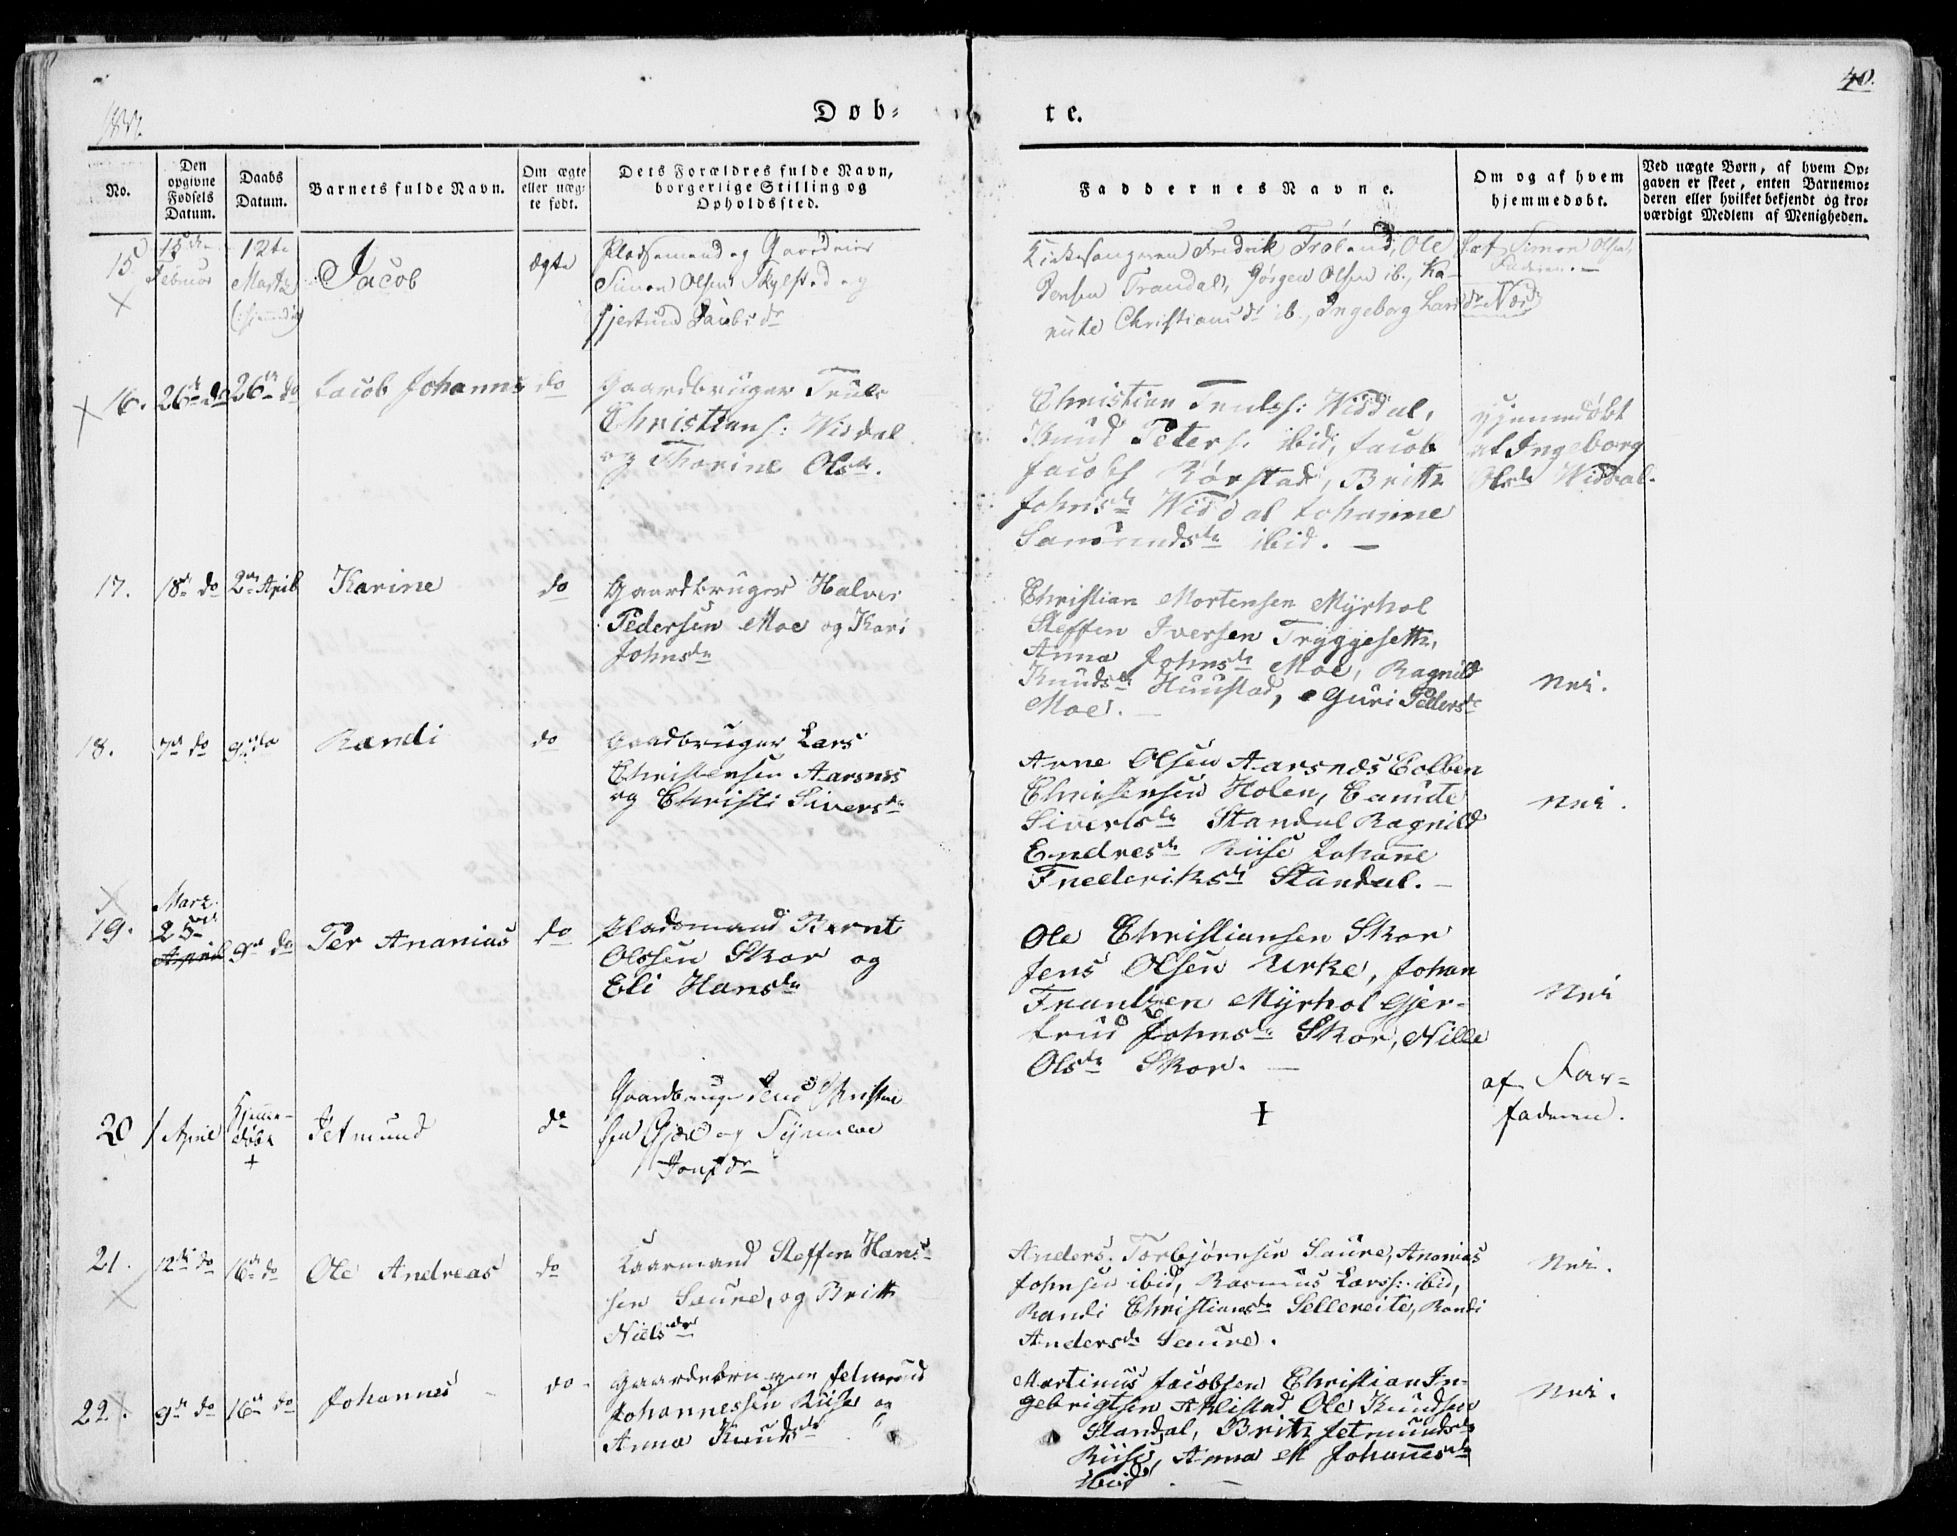 40.
Døb-
te.
No.
Den opgivne Fødsels Datum.
Daabs Datum.
Barnets fulde Navn.
Om ægte eller uægte født.
Dets Forældres fulde Navn, borgerlige Stilling og Opholdssted.
Faddernes Navne.
Om og af hvem hjemmedøbt.
Ved uægte Børn, af hvem Opgaven er skeet, enten Barnemoderen eller hvilket bekjendt og troværdigt Medlem af Menigheden.
15
Februar
12te
Marts
Jacob
ægte
Pladsemand og
Simon Olsen og
Jacobsdr
Kirkesangeren Fredrik Ole
Jensen Trandal, Jørgen Olsen ib., Ka-
Christiansdr ib., Ingeborg
Simon Olsen,
Faderen.
16. 26de do 26de do Jacob Johannes do
Gaardbruger Truls
Christians: Widdal
og Thorine Olsdr.
Christian Trulss: Widdal,
Knud Peters: ibid, Jacob
Jacobs Rørstad, Britte
Johnsdr Widdal Johanne
ibid. —
hjemmedøbt
af Ingeborg
Olsdr Widdal.
17. 18de do 2den April Karine do
Gaardbruger Halvor
Pedersen Moe og Kari
Johnsdr
Christian Mortensen Myrhol
Steffen Iversen Tryggesett,
Anna Johnsdr Moe, Ragnild
Knudsdr Huustad, Guri Peders
Moe. —
Nei.
18. 7de do 9de do Randi do
Gaardbruger Lars
Christensen Aarsnes
og Christi Siversdr
Arne Olsen Aarsnæs Colben
Christensen Holen,
Siverlsdr Standal Ragnild
Endresdr Riise Johanne
Frederiksdr Standal. —
Nei.
Marz.
19. 25de April 9de do Per Ananias do
Pladsmand Bernt
Olssen Skor og
Eli Hansdr
Ole Christiansen Skor
Jens Olsen Urke, Johan
Frantzen Myrhol Gjer-
trud Johnsdr Skor, Nille
Olsdr Skor. —
Nei
20 1 April Hjemme-
døbt
+
Jetmund
do
Gaardbruger Knud Christen
sen og Synneve
Jonsdr
+
af Far-
faderen.
21. 12de do 16de do Ole Andreas do
Kaarmand Steffen Hans-
sen Saure, og Britte
Nielsdr
Anders Torbjørnsen Saure, Ananias
Johnsen ibid, Rasmus Larss: ibid,
Randi Christiansdr Sellereite, Randi
Andersdr Saure.
Nei.
22. 9de do 16de do Johannes do
Gaardebruger Jetmund
Johannessen Riise og
Anna Knudsdr
Martinus Jacobsen Christian In-
gebrigtsen Aklistad Ole Knudsen
Standal, Britte Jetmundsdr
Riise, Anna M Johannesdr
ibid. —
Nei.